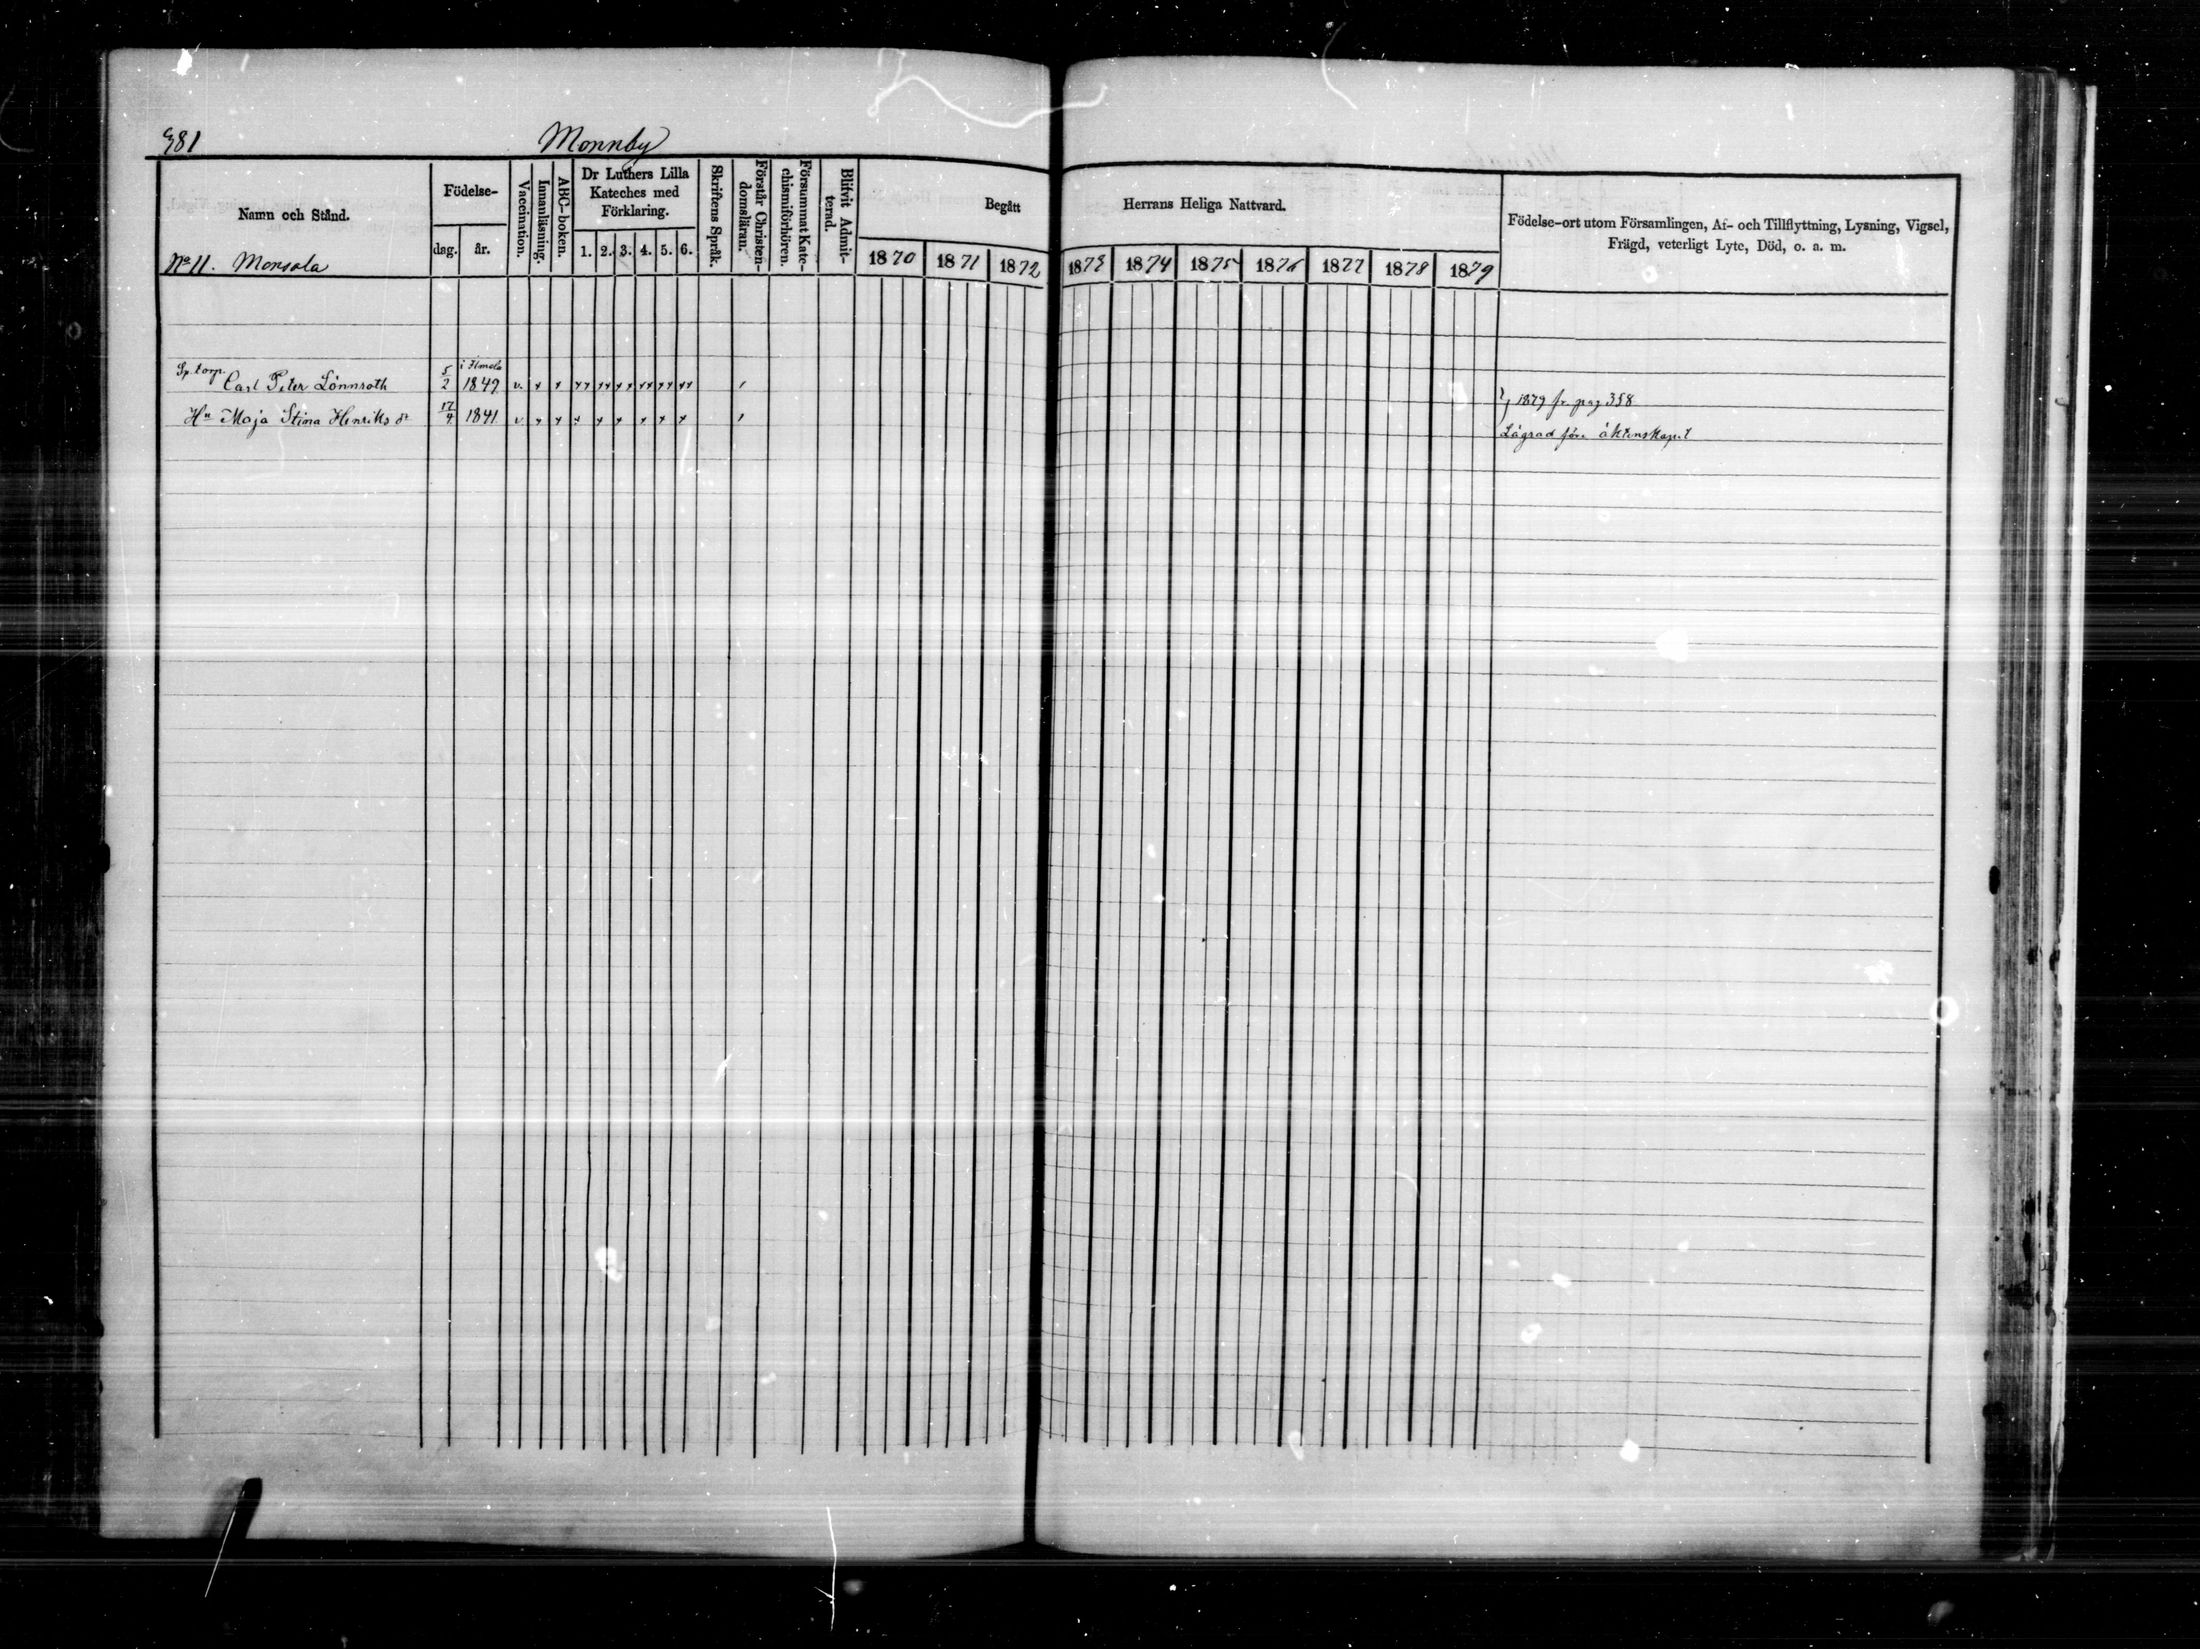 381 Monnby
Namn och Stånd.
Födelse-
dag.
år.
Vaccination.
Innanläsning.
ABC-boken.
Dr Luthers Lilla
Kateches med
Förklaring.
1. 2. 3. 4. 5. 6.
Skriftens Språk.
Förstår Christen-
domsläran.
Försummat Kate-
chismiförhören.
Blifvit Admit-
terad.
Begått Herrans Heliga Nattvard.
1870 1871 1872 1873 1874 1875 1876 1877 1878 1879
Födelse-ort utom Församlingen, Af- och Tillflyttning, Lysning, Vigsel,
Frägd, veterligt Lyte, Död, o. a. m.
No 11. Monsala
Sp. torp. Carl Peter Lönnroth 5/2 1849 v. x x xx xx xx xx xx xx
} 1879 fr. pag 358
Hu Maja Stina Henriks dr 17/4 1841 v x x x x x x x x
Lägrad före äktenskapet